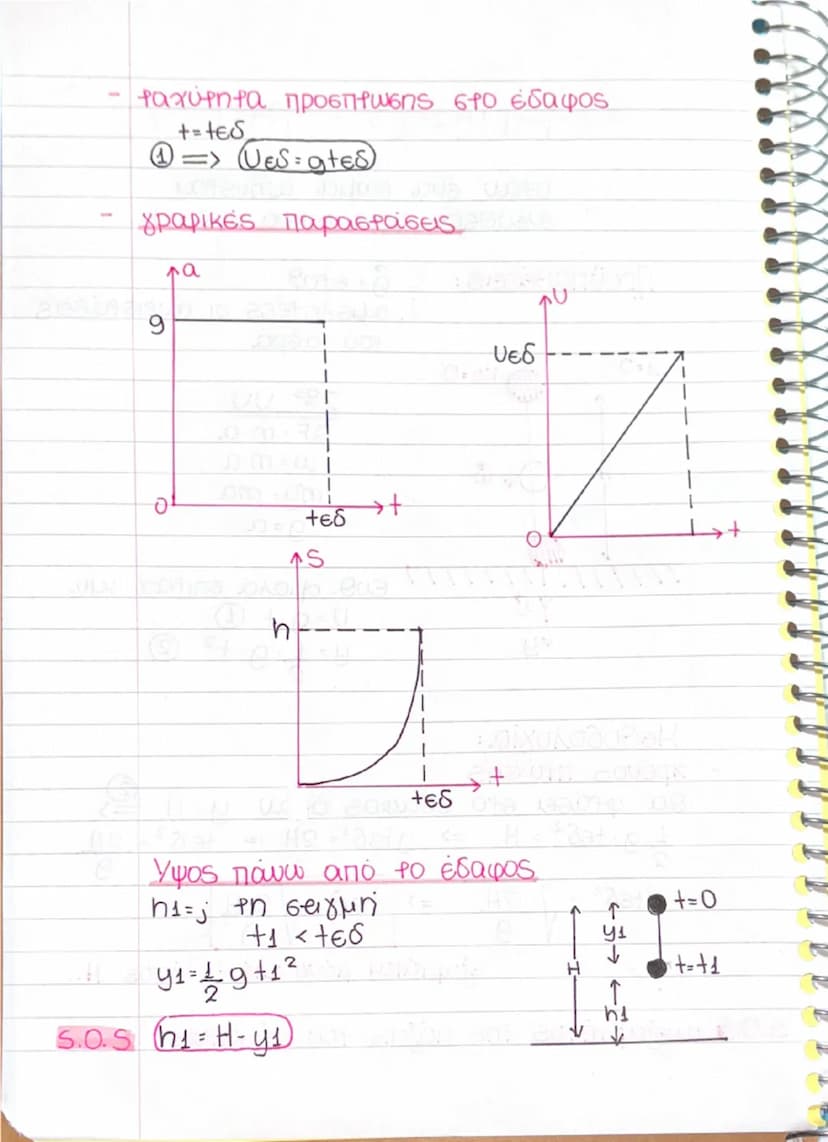 - ταχύτητα προσπτωσης στο έδαφος
t=tεδ
① => υεδ=gtεδ
- γραφικές παραστάσεις
a
g
0
tεδ
t
υ
υεδ
0
t
S
h
tεδ
t
Υψος πάνω από το έδαφος
h1=; τη στιγμή
t1 < tεδ
y1=1/2 gt1²
S.O.S h1 = H- y1
t=0
y1
H
t=t1
h1